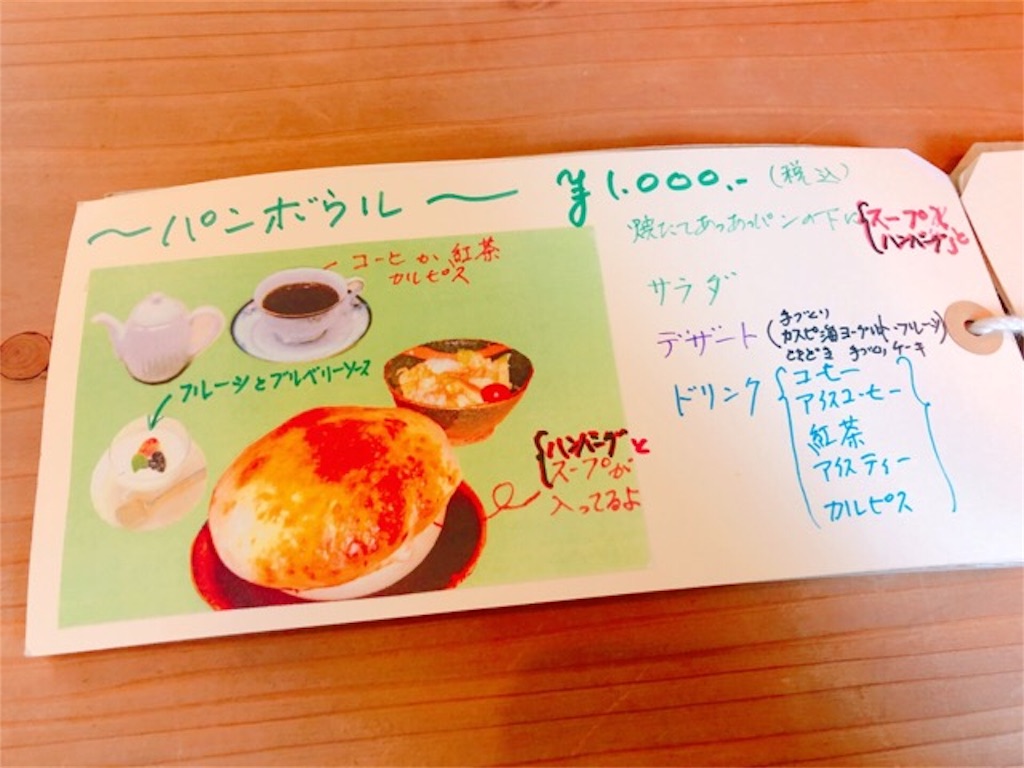 〜パンボウル〜 ¥1.000.-(税込)
焼たてあつあつパンの下に{スープと
ハンバーグと
サラダ
デザート(手づくり
カスピ海ヨーグルト・フルーツ)
ときどき 手づくりケーキ
ドリンク{コーヒー
アイスコーヒー
紅茶
アイスティー
カルピス
コーヒーか紅茶
カルピス
フルーツとブルベリーソース
{ハンバーグと
スープが
入ってるよ